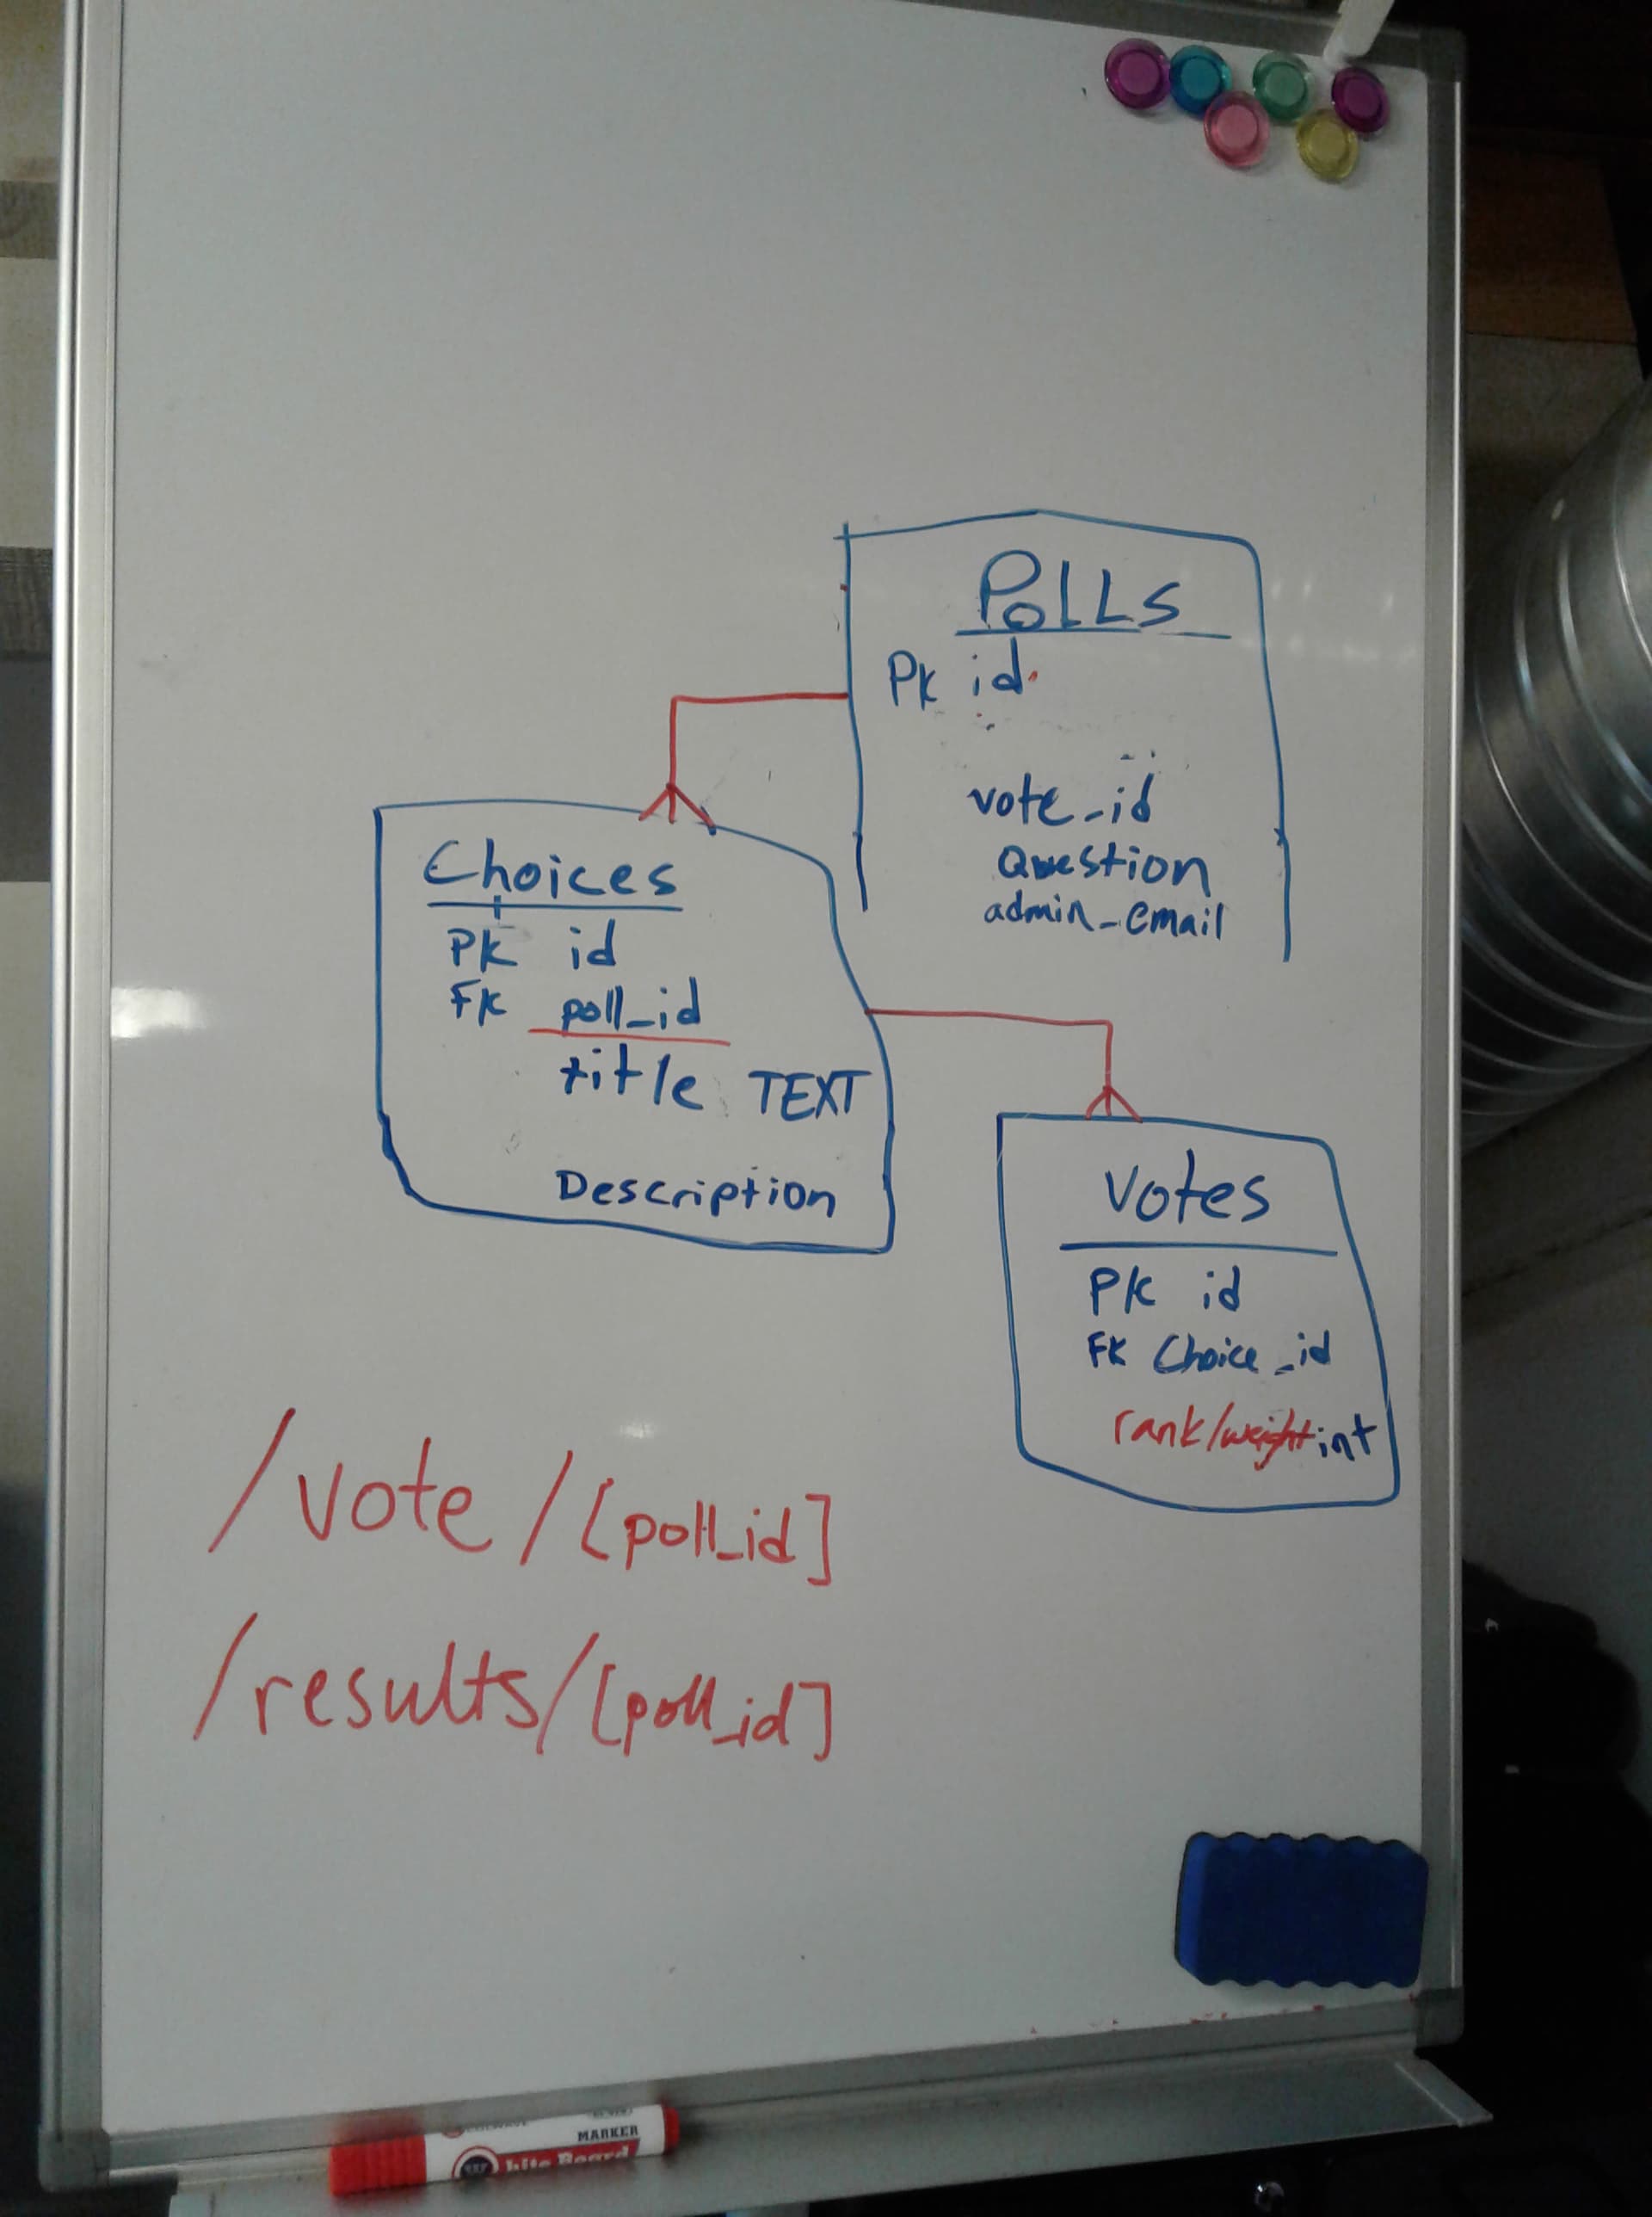 PoLLs
Pk id
vote_id
Question
admin_email
Choices
Pk id
FK poll_id
title TEXT
Description
votes
PK id
FK Choice_id
rank/weight int
/vote/[poll_id]
/results/[poll_id]
MARKER
hite Board